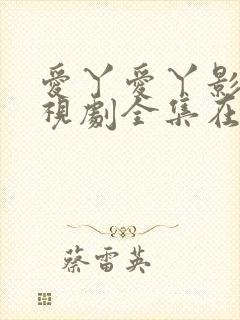 愛丫愛丫影
視劇全集在
蔡雷英